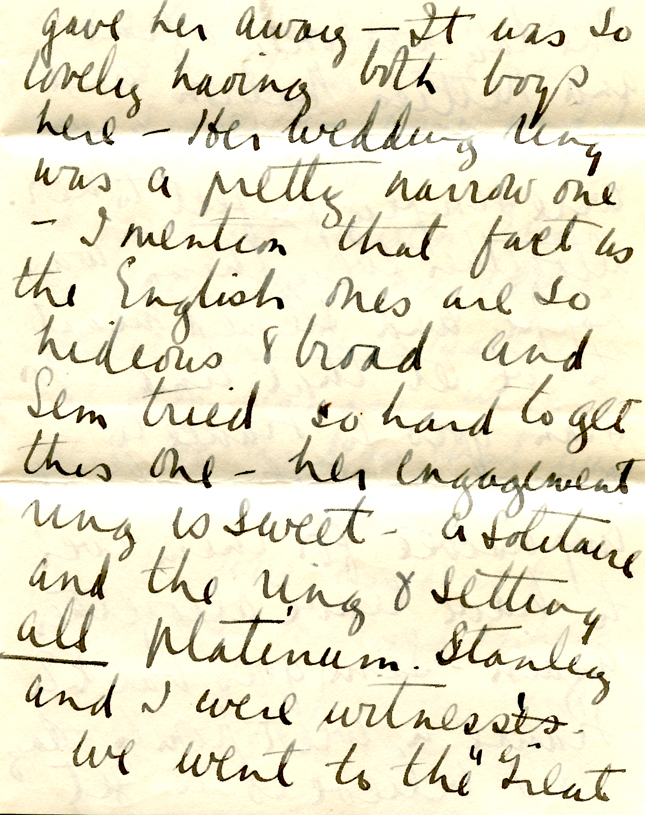 gave her away – It was so
lovely having both boys
here – Her wedding ring
was a pretty narrow one
– I mention that fact as
the English ones are so
hideous & broad and
Sem tried so hard to get
this one – her engagement
ring is sweet – a solitaire
and the ring & setting
all platinum. Stanley
and I were witnesses.
We went to the "Great